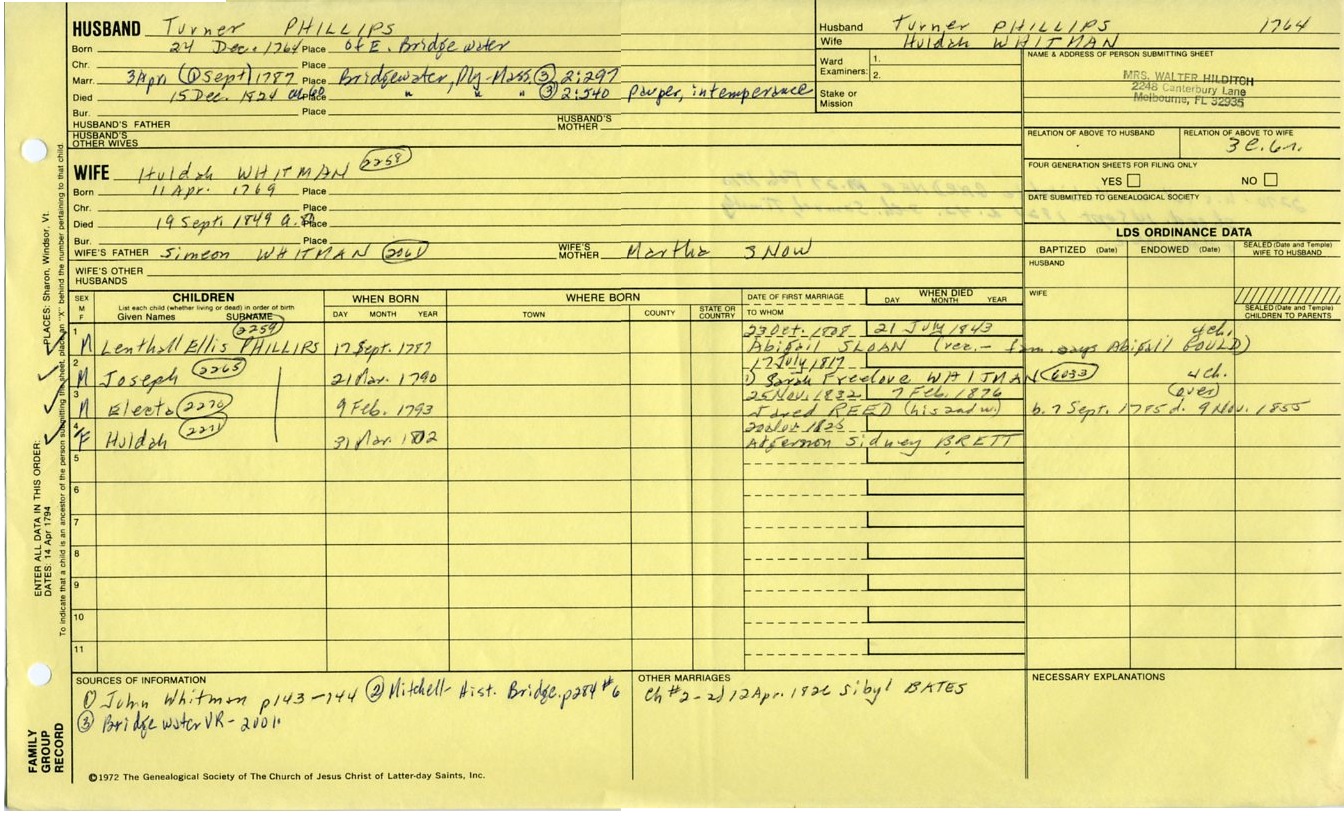 HUSBAND Turner PHILLIPS
Born 24 Dec. 1764 Place of E. Bridgewater
Chr. Place
Marr. 3 Apr (① Sept) 1787 Place Bridgewater, Ply-Mass ③ 2:297
Died 15 Dec. 1824 Place " " " ③ 2:540 pauper, intemperance
Bur. Place
HUSBAND'S FATHER HUSBAND'S MOTHER
HUSBAND'S OTHER WIVES
Husband Turner PHILLIPS 1764
Wife Huldah WHITMAN
Ward 1.
Examiners: 2.
Stake or Mission
NAME & ADDRESS OF PERSON SUBMITTING SHEET
MRS. WALTER HILDITCH
2248 Canterbury Lane
Melbourne, FL 32935
RELATION OF ABOVE TO HUSBAND RELATION OF ABOVE TO WIFE
3C.6r.
FOUR GENERATION SHEETS FOR FILING ONLY
YES NO
DATE SUBMITTED TO GENEALOGICAL SOCIETY
WIFE Huldah WHITMAN 2258
Born 11 Apr. 1769 Place
Chr. Place
Died 19 Sept. 1849 Place
Bur. Place
WIFE'S FATHER Simeon WHITMAN WIFE'S MOTHER Martha SNOW
WIFE'S OTHER HUSBANDS
LDS ORDINANCE DATA
BAPTIZED (Date) ENDOWED (Date) SEALED (Date and Temple) WIFE TO HUSBAND
HUSBAND
WIFE
SEALED (Date and Temple) CHILDREN TO PARENTS
SEX M F CHILDREN WHEN BORN WHERE BORN DATE OF FIRST MARRIAGE WHEN DIED
List each child (whether living or dead) in order of birth
Given Names SURNAME DAY MONTH YEAR TOWN COUNTY STATE OR COUNTRY TO WHOM DAY MONTH YEAR
1 M Lenthall Ellis PHILLIPS 2259 17 Sept. 1787 23 Oct. 1808 21 July 1843 4 ch.
Abigail SLOAN (rec. - fam. says Abigail GOULD)
2 M Joseph 2265 21 Mar. 1790 17 July 1817
1) Sarah Freelove WHITMAN 6033 4 ch. (over)
3 M Electa 2270 9 Feb. 1793 25 Nov. 1832 7 Feb. 1876
Jared REED (his 2nd w.) b. 7 Sept. 1785 d. 9 Nov. 1855
4 F Huldah 2271 31 Mar. 1802 1825
Sidney BRETT
5
6
7
8
9
10
11
SOURCES OF INFORMATION
① John Whitman p143-144 ② Mitchell- Hist. Bridge. p284 #6
③ Bridgewater VR-
OTHER MARRIAGES
Ch #2 - 2) 12 Apr. 1826 Sibyl BATES
NECESSARY EXPLANATIONS
©1972 The Genealogical Society of The Church of Jesus Christ of Latter-day Saints, Inc.
ENTER ALL DATA IN THIS ORDER:
DATES: 14 Apr 1794 PLACES: Sharon, Windsor, Vt.
To indicate that a child is an ancestor of the person submitting the sheet, place an "X" behind the number pertaining to that child.
FAMILY GROUP RECORD